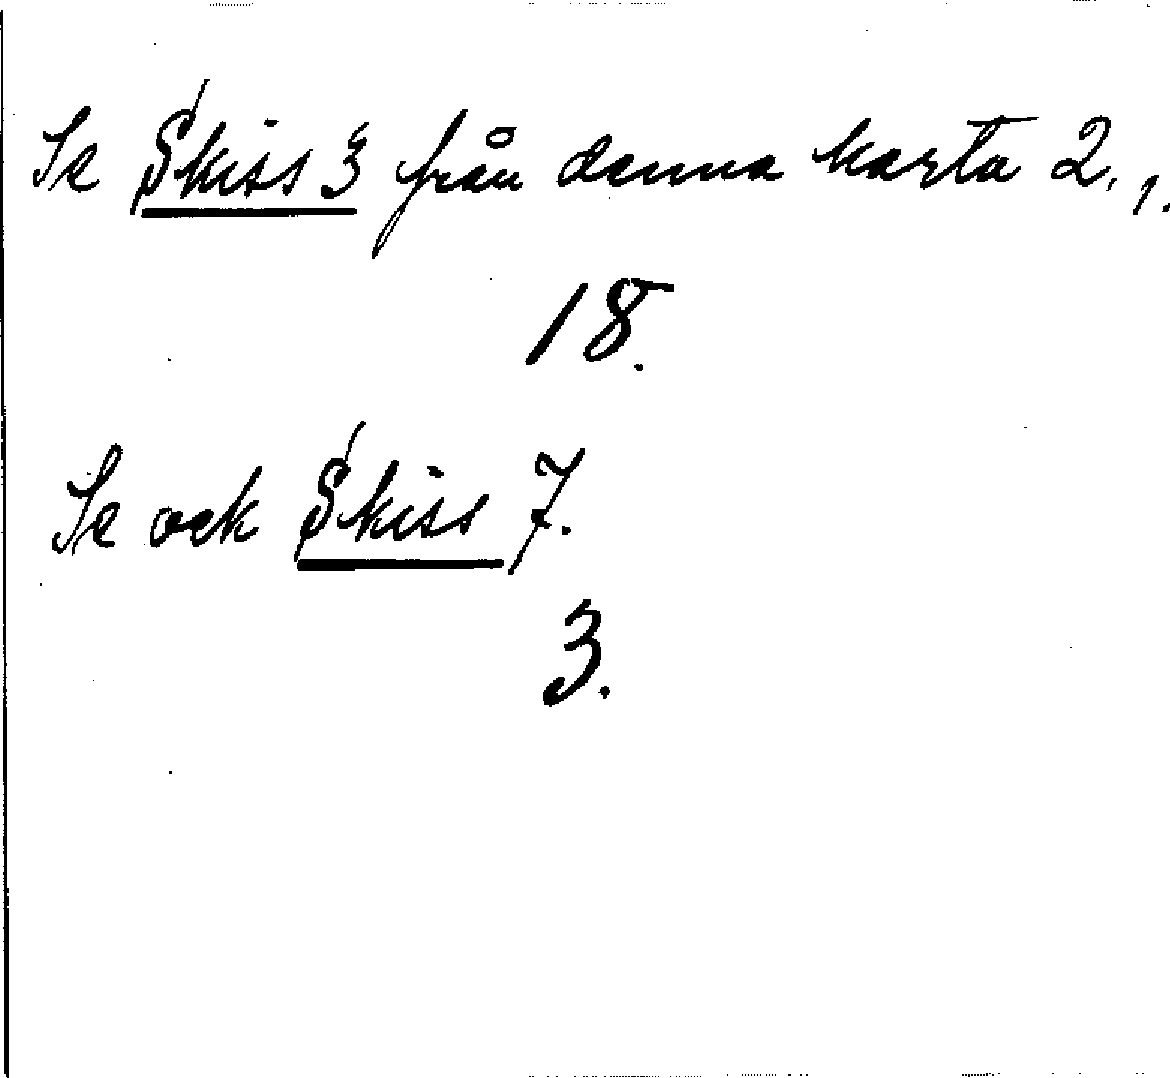 Se Skiss 3 från denna karta 2., 1.
18.
Se ock Skiss 7.
3.